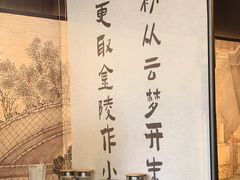 你从云梦开朱
更取金陵作小